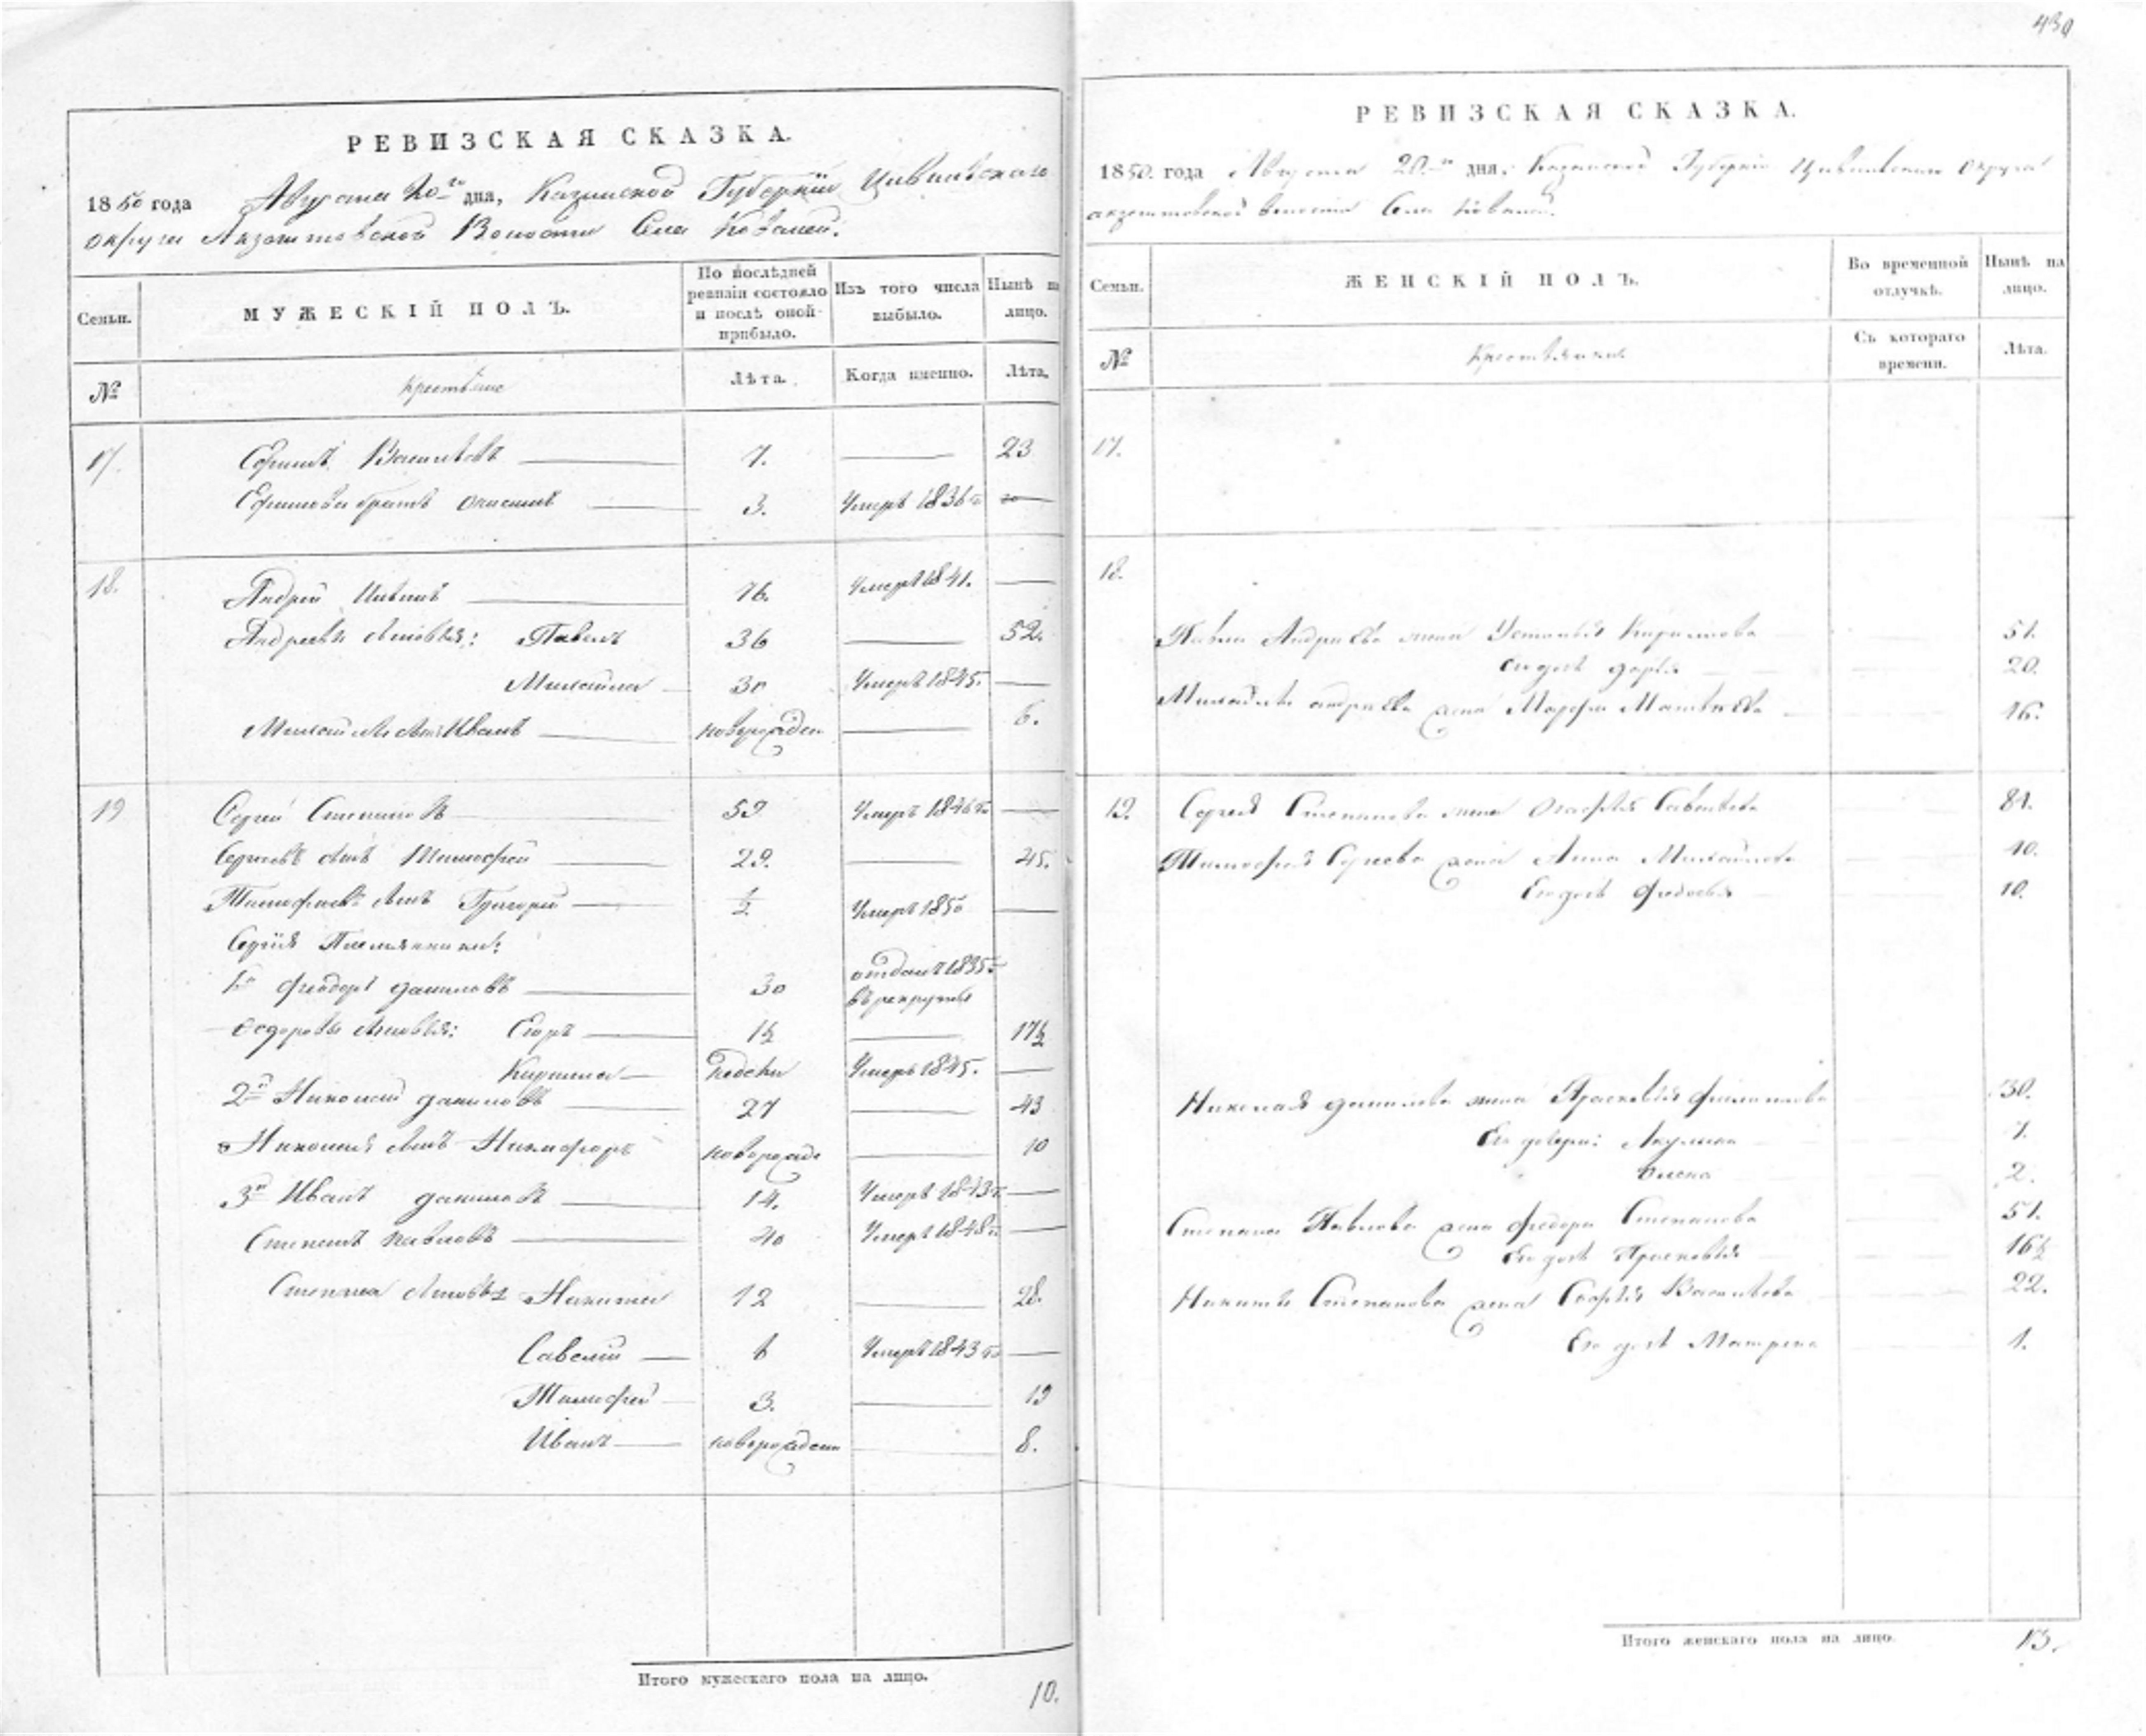 430
РЕВИЗСКАЯ СКАЗКА.
1850 года Августа 20го дня, Казанской Губерніи Цивильскаго
округи Акзегитовской Волости Села Ковалей.
Семьи.
МУЖЕСКІЙ ПОЛЪ.
По послѣдней ревизіи состояло и послѣ оной прибыло.
Изъ того числа выбыло.
Нынѣ на лицо.
№
Крестьяне
Лѣта.
Когда именно.
Лѣта.
17. Ефимъ Васильевъ 7. 23
Ефимовъ братъ 3. Умеръ 1836го
18. Андрей Ивановъ 76. Умеръ 1841.
Андреевы сыновья: Павелъ 36 52.
Михайла 30 Умеръ 1845.
Михайлы сынъ Иванъ новорожден 6.
19 Сергей Степановъ 59 Умеръ 1846го
Сергеевъ сынъ Тимофей 29. 45.
Тимофеевъ сынъ Григорий ½ Умеръ 1850
Сергія Племянники:
1й Феодоръ Даниловъ 30 отданъ 1835го
въ рекруты
Федоровы сыновья: Егоръ 1½ 17½
Кирилла недели Умеръ 1845.
2й Николай Даниловъ 27 43
Николая сынъ Никифоръ новорожде 10
3й Иванъ Даниловъ 14. Умеръ 1843го
Степанъ Павловъ 40 Умеръ 1848го
Степана сыновья Никита 12 28.
Савелій 6 Умеръ 1843го
Тимофей 3. 19
Иванъ новорожденн 8.
Итого мужескаго пола на лицо. 10.
РЕВИЗСКАЯ СКАЗКА.
1850. года Августа 20.го дня, Казанской Губерніи Цивильскаго Округа
акзегитовской волости Села Ковалей.
Семьи.
ЖЕНСКІЙ ПОЛЪ.
Во временной отлучкѣ.
Нынѣ на лицо.
№
Крестьянки
Съ котораго времени.
Лѣта.
17.
18.
Павла Андреева жена Устинья Кирилова 51.
Его дочь Дарья 20.
Михайлы Андреева жена Марфа Матвеева 46.
19. Сергея Степанова жена Агафья Савельева 81.
Тимофея Сергеева жена Анна Михайлова 40.
Его дочь Федосья 10.
Николая Данилова жена Прасковья Филиппова 30.
Его дочери: Акулина 7.
Олена 2.
Степана Павлова жена Федора Степанова 51.
Его дочь Прасковья 16½
Никиты Степанова жена Васильева 22.
Его дочь Матрена 1.
Итого женскаго пола на лицо. 13.